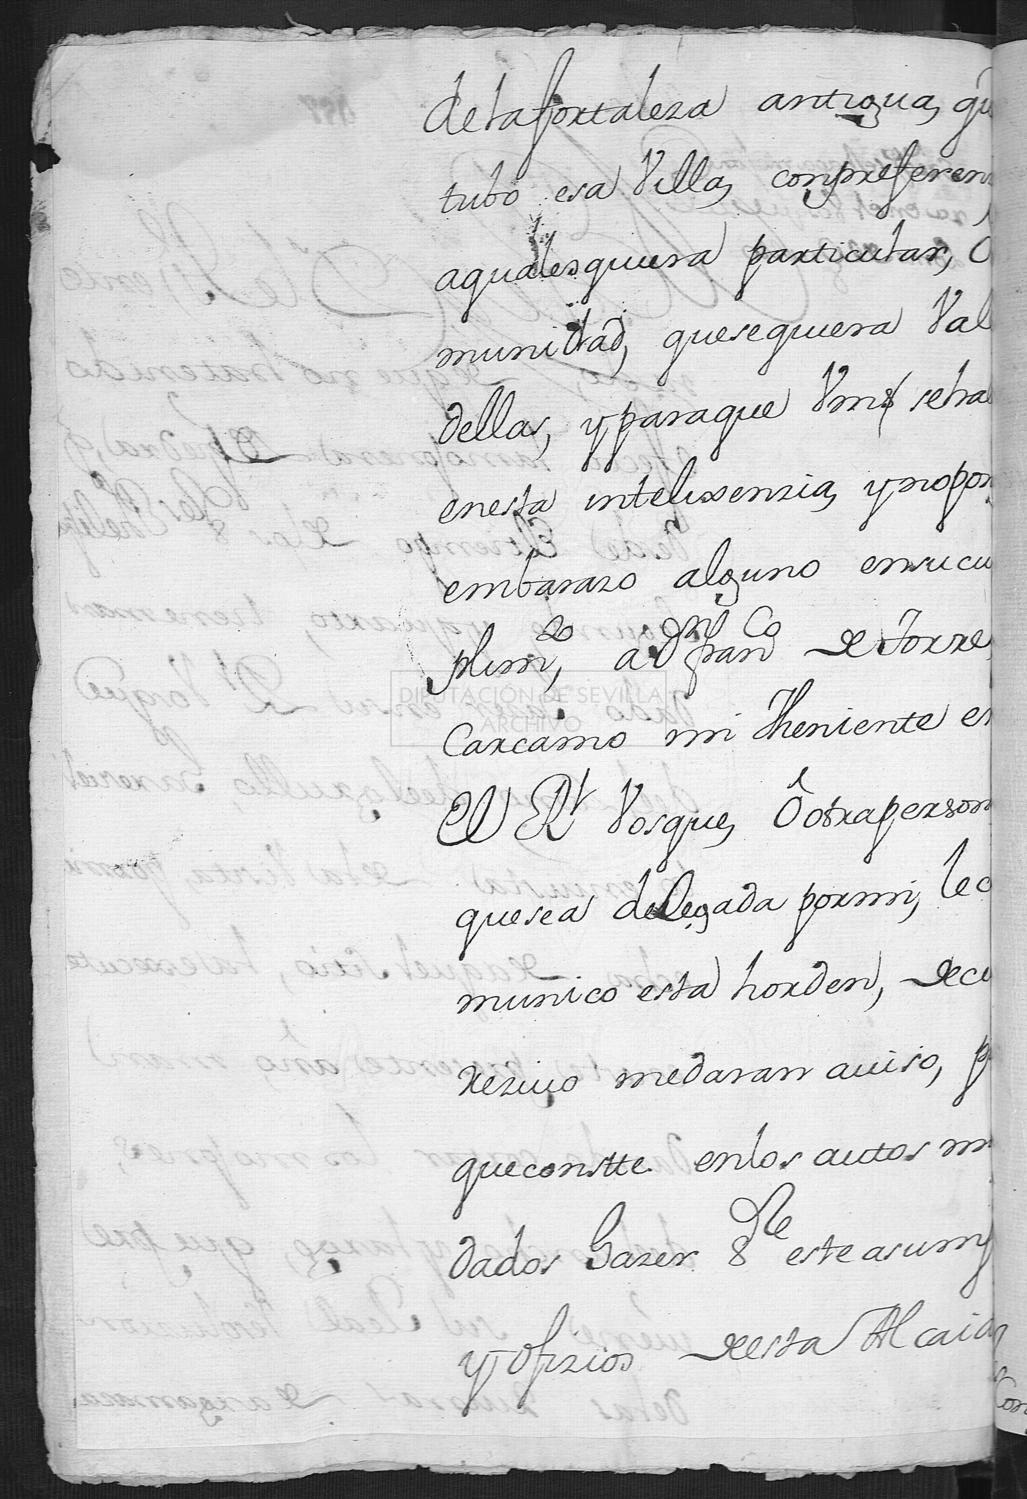 de la fortaleza antigua, qu
tubo esa Villa, con preferen
a qualesquiera particular, o
munidad, que se quiera Val
dellas, y para que Vms se hal
en esta intelixenzia, y no pon
embarazo alguno en su cu
plimto, a Dn Franco de Torre
Carcamo mi Theniente en
el Rl Vosque, ô otra person
que sea delegada por mi, le c
munico esta horden, de cu
rezivo me daran aviso, p
que constte en los autos m
dados hazer sre este asump
y ofizios de esta Alcaid
DIPUTACIÓN DE SEVILLA
ARCHIVO